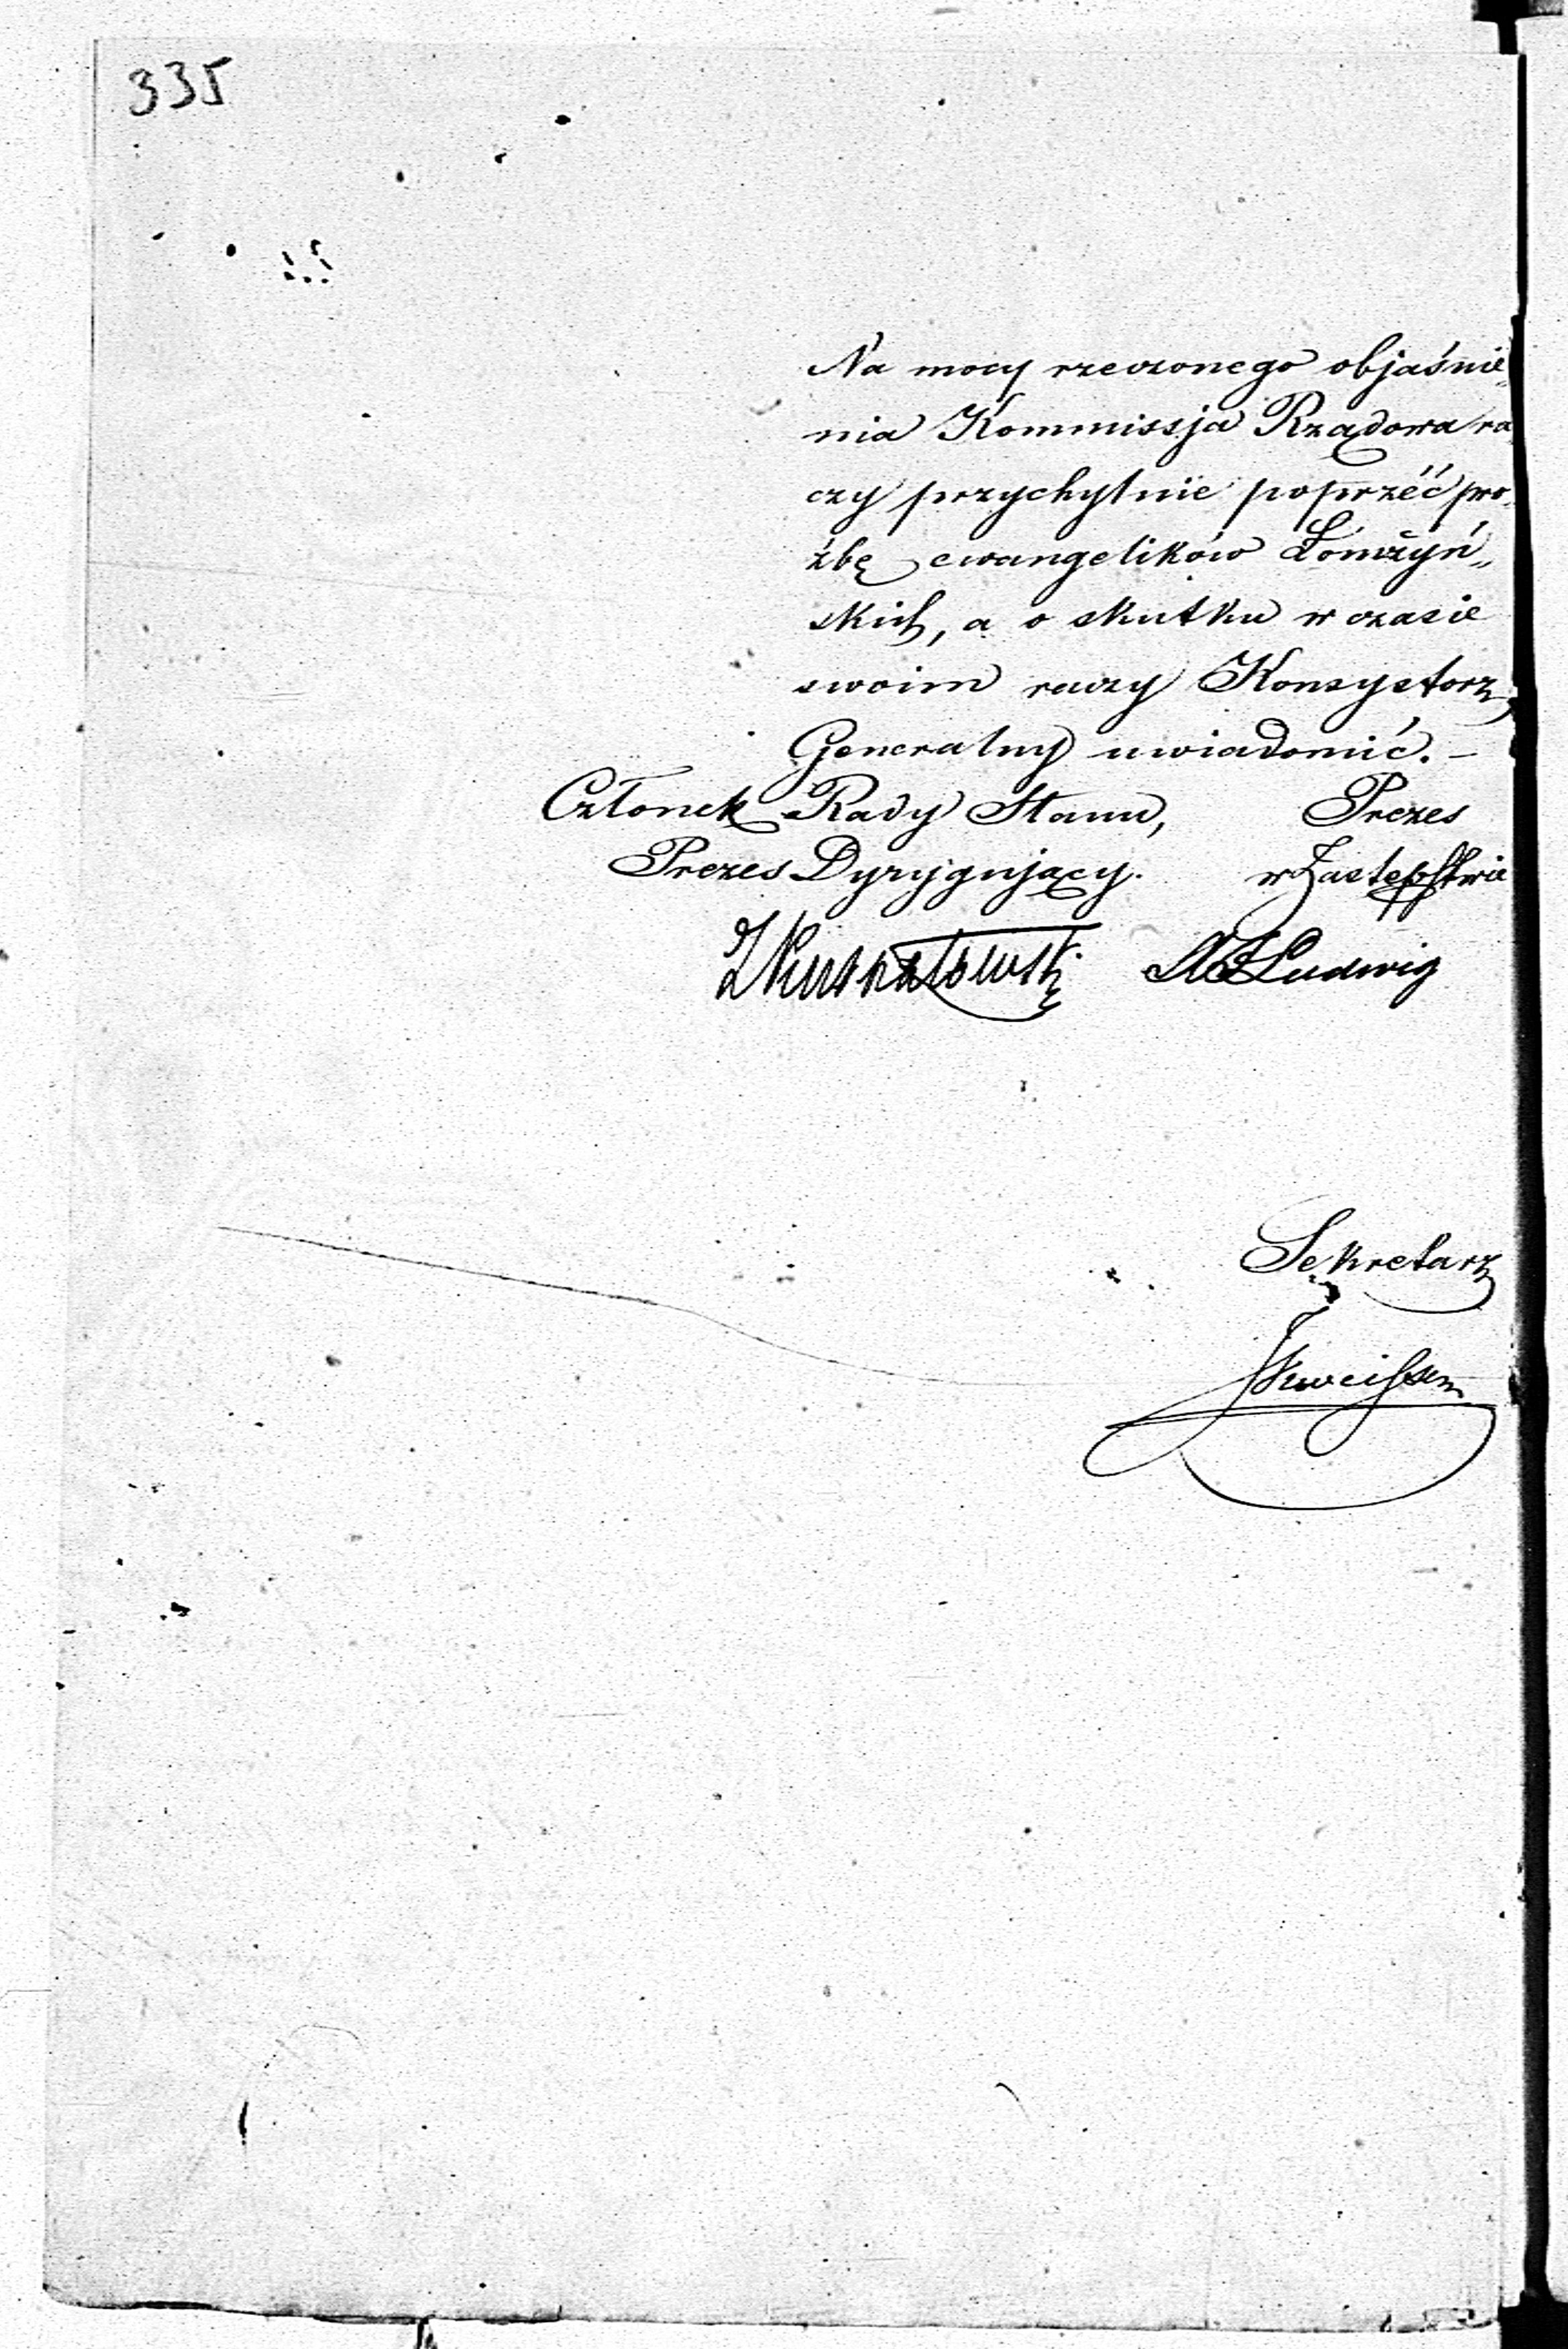 335
Na mocy rzeczonego objaśnie„
nia Kommissja Rządowa ra„
czy przychylnie poprzéć pro„
źbę ewangelików Łomżyń„
skich, a o skutku w czasie
swoim raczy Konsystorz
Generalny uwiadomić. –
Członek Rady Stanu, Prezes
Prezes Dyrygujący. w Zastępstwie
Ludwig
Sekretarz